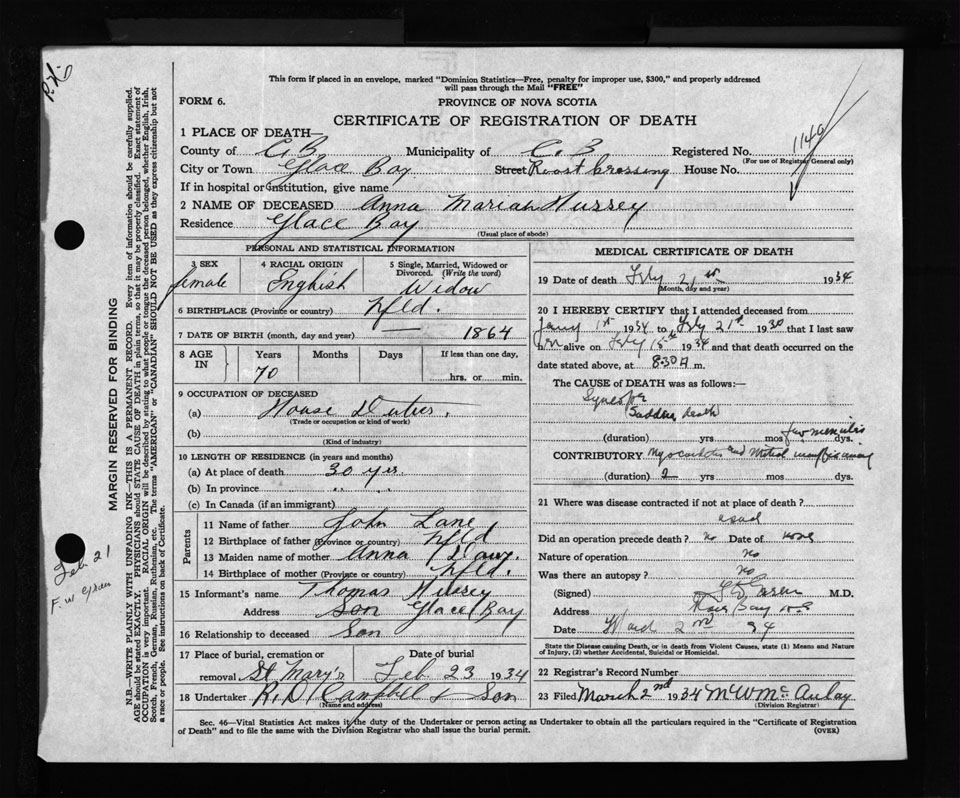 This form if placed in an envelope, marked "Dominion Statistics—Free, penalty for improper use, $300," and properly addressed
will pass through the Mail "FREE"
FORM 6.
PROVINCE OF NOVA SCOTIA
CERTIFICATE OF REGISTRATION OF DEATH
1 PLACE OF DEATH—
County of C.B. Municipality of C.B Registered No. 1149
(For use of Registrar General only)
City or Town Glace Bay Street Roost Crossing House No.
If in hospital or institution, give name
2 NAME OF DECEASED Anna Mariah Hussey
Residence Glace Bay
(Usual place of abode)
PERSONAL AND STATISTICAL INFORMATION
3 SEX female
4 RACIAL ORIGIN English
5 Single, Married, Widowed or Divorced. (Write the word) Widow
6 BIRTHPLACE (Province or country) Nfld.
7 DATE OF BIRTH (month, day and year) — 1864
8 AGE IN Years 70 Months Days If less than one day, hrs. or min.
9 OCCUPATION OF DECEASED
(a) House Duties.
(Trade or occupation or kind of work)
(b)
(Kind of industry)
10 LENGTH OF RESIDENCE (in years and months)
(a) At place of death 30 yrs
(b) In province " "
(c) In Canada (if an immigrant)
Parents
11 Name of father John Lane
12 Birthplace of father (Province or country) Nfld
13 Maiden name of mother Anna
14 Birthplace of mother (Province or country) Nfld.
15 Informant's name Thomas Hussey
Address Son Glace Bay
16 Relationship to deceased Son
17 Place of burial, cremation or removal St Mary's Date of burial Feb 23 1934
18 Undertaker R. D. Campbell & Son
(Name and address)
MEDICAL CERTIFICATE OF DEATH
19 Date of death Feby 21st 1934
(Month, day and year)
20 I HEREBY CERTIFY that I attended deceased from
Jany 1st 1934 to Feby 21st 1930 that I last saw
h er alive on Feby 1934 and that death occurred on the
date stated above, at 8.30 A m.
The CAUSE of DEATH was as follows:—
Syncope
Sudden death
(duration) yrs mos few minutes dys.
CONTRIBUTORY Myocarditis and Mitral insufficiency
(duration) 2 yrs mos dys.
21 Where was disease contracted if not at place of death?
Did an operation precede death? no Date of none
Nature of operation no
Was there an autopsy? no
(Signed) M.D.
Address Glace Bay N.S
Date March 2nd 34
State the Disease causing Death, or in death from Violent Causes, state (1) Means and Nature
of Injury, (2) whether Accidental, Suicidal or Homicidal.
22 Registrar's Record Number
23 Filed March 2nd 1934 McAulay
(Division Registrar)
Sec. 46—Vital Statistics Act makes it the duty of the Undertaker or person acting as Undertaker to obtain all the particulars required in the "Certificate of Registration
of Death" and to file the same with the Division Registrar who shall issue the burial permit. (OVER)
MARGIN RESERVED FOR BINDING
N.B.—WRITE PLAINLY WITH UNFADING INK—THIS IS A PERMANENT RECORD. Every item of information should be carefully supplied.
AGE should be stated EXACTLY. PHYSICIANS should STATE CAUSE OF DEATH in plain terms, so that it may be properly classified. Exact statement of
OCCUPATION is very important. RACIAL ORIGIN will be described by stating to what people or tongue the deceased person belonged, whether English, Irish,
Scotch, French, German, Russian, Ruthenian, etc. The terms "AMERICAN" or "CANADIAN" SHOULD NOT BE USED as they express citizenship but not
a race or people. See instructions on back of Certificate.
Feb 21